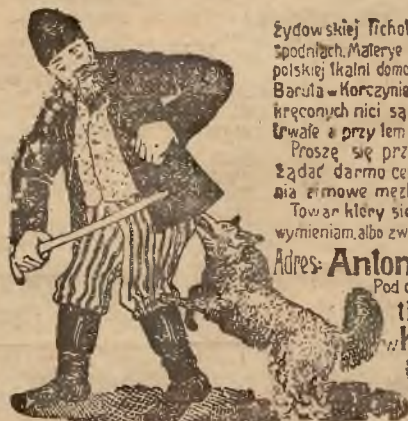 żydowskiej Tichoł
spodniach. Materye
polskiej tkalni domo
Baruta w Korczynie
kręconych nici są
trwałe a przy tem
Proszę się prz
żądać darmo ce
nia zimowe męz
Towar który się
wymieniam, albo zw
Adres: Anton
Pod o
t
w K